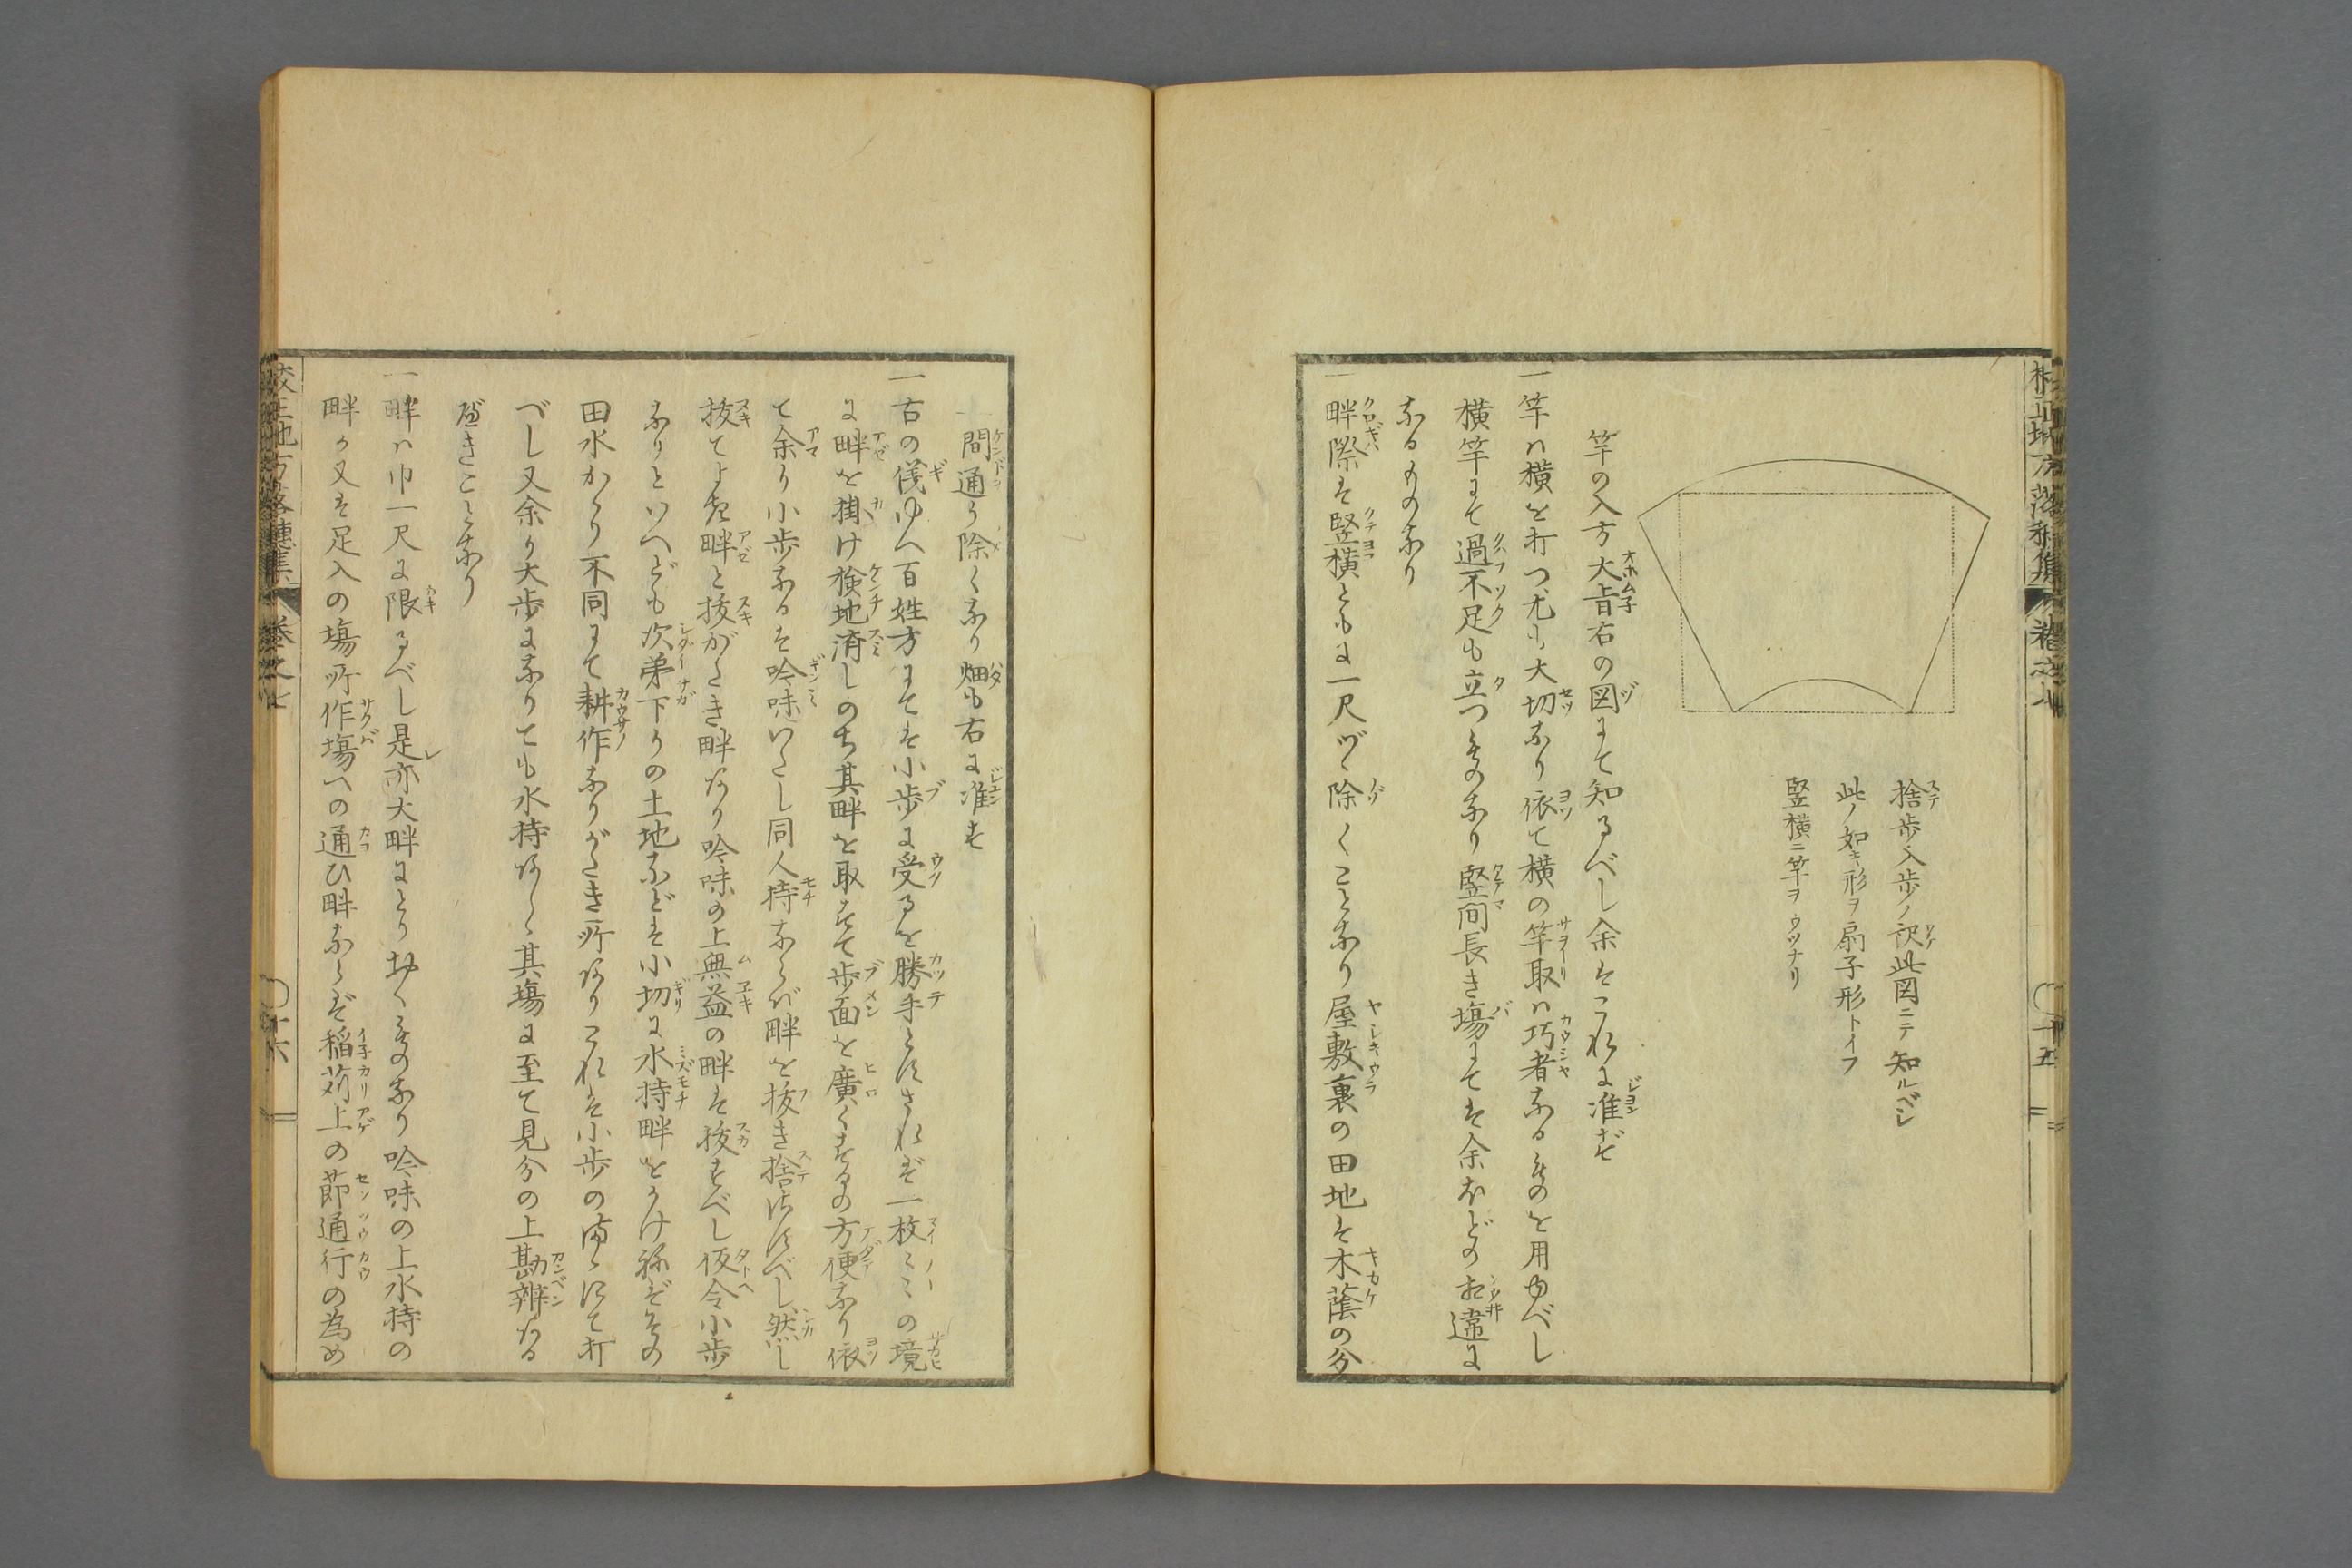 捨歩入歩ノ訳此図ニテ知ルベシ
此ノ如キ形ヲ扇子形トイフ
竪横ニ竿ヲウツナリ
竿の入方大旨右の図にて知るべし余はこれに准ず
一竿は横を打つ尤も大切なり依て横の竿取は巧者なるものを用ゆべし
横竿にて過不足も立つものなり竪間長き場にては余ほどの相違に
なるものなり
一畔際は竪横ともに一尺づゝ除くことなり屋敷裏の田地は木蔭の分
一間通り除くなり畑も右に准ず
一古の儀ゆへ百姓方にては小歩に受るを勝手とすされば一枚〳〵の境
に畔を掛け検地済しのち其畔を取すて歩面を廣くするの方便なり依
て余り小歩なるは吟味いたし同人持ならば畔を抜き捨さすべし然し
抜てよき畔と抜がたき畔あり吟味の上無益の畔は抜すべし仮令小歩
なりといへども次第下りの土地などは小切に水持畔をかけねばその
田水かゝり不同にて耕作なりがたき所ありこれは小歩のまゝにて打
べし又余り大歩になりても水持あしく其場に至て見分の上勘辨ある
べきことなり
一畔は巾一尺に限るべし是亦大畔にとり置くものなり吟味の上水持の
畔か又は足入の場所作場への通ひ畔ならば稲苅上の節通行の為め
校正地方落穂集
巻之七
十五
校正地方落穂集
巻之七
十六